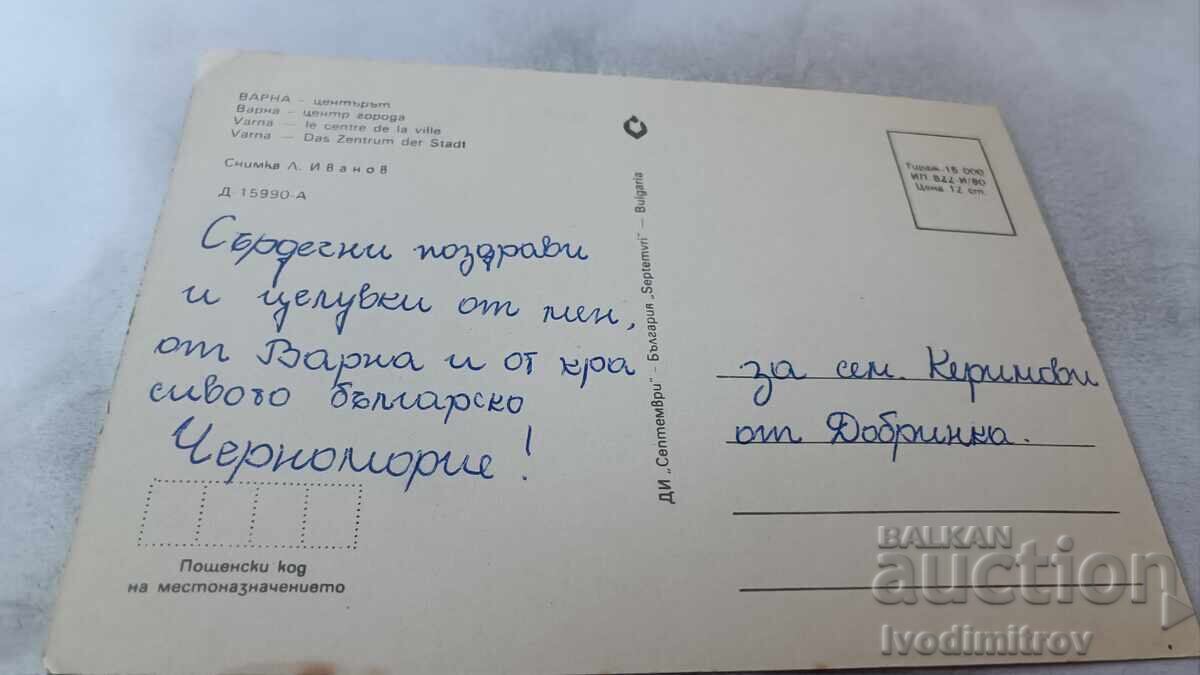 ВАРНА — центърът
Варна — центр города
Varna — le centre de la ville
Varna — Das Zentrum der Stadt
Снимка Л. Иванов
Д 15990-А
Сърдечни поздрави
и целувки от мен,
от Варна и от кра
сивото българско
Черноморие!
Пощенски код
на местоназначението
ДИ „Септември" — България „Septemvri" — Bulgaria
Тираж 15 000
ИП 822-И/80
Цена 12 ст.
за сем. Керимови
от Добринка.
BALKAN
auction
Ivodimitrov